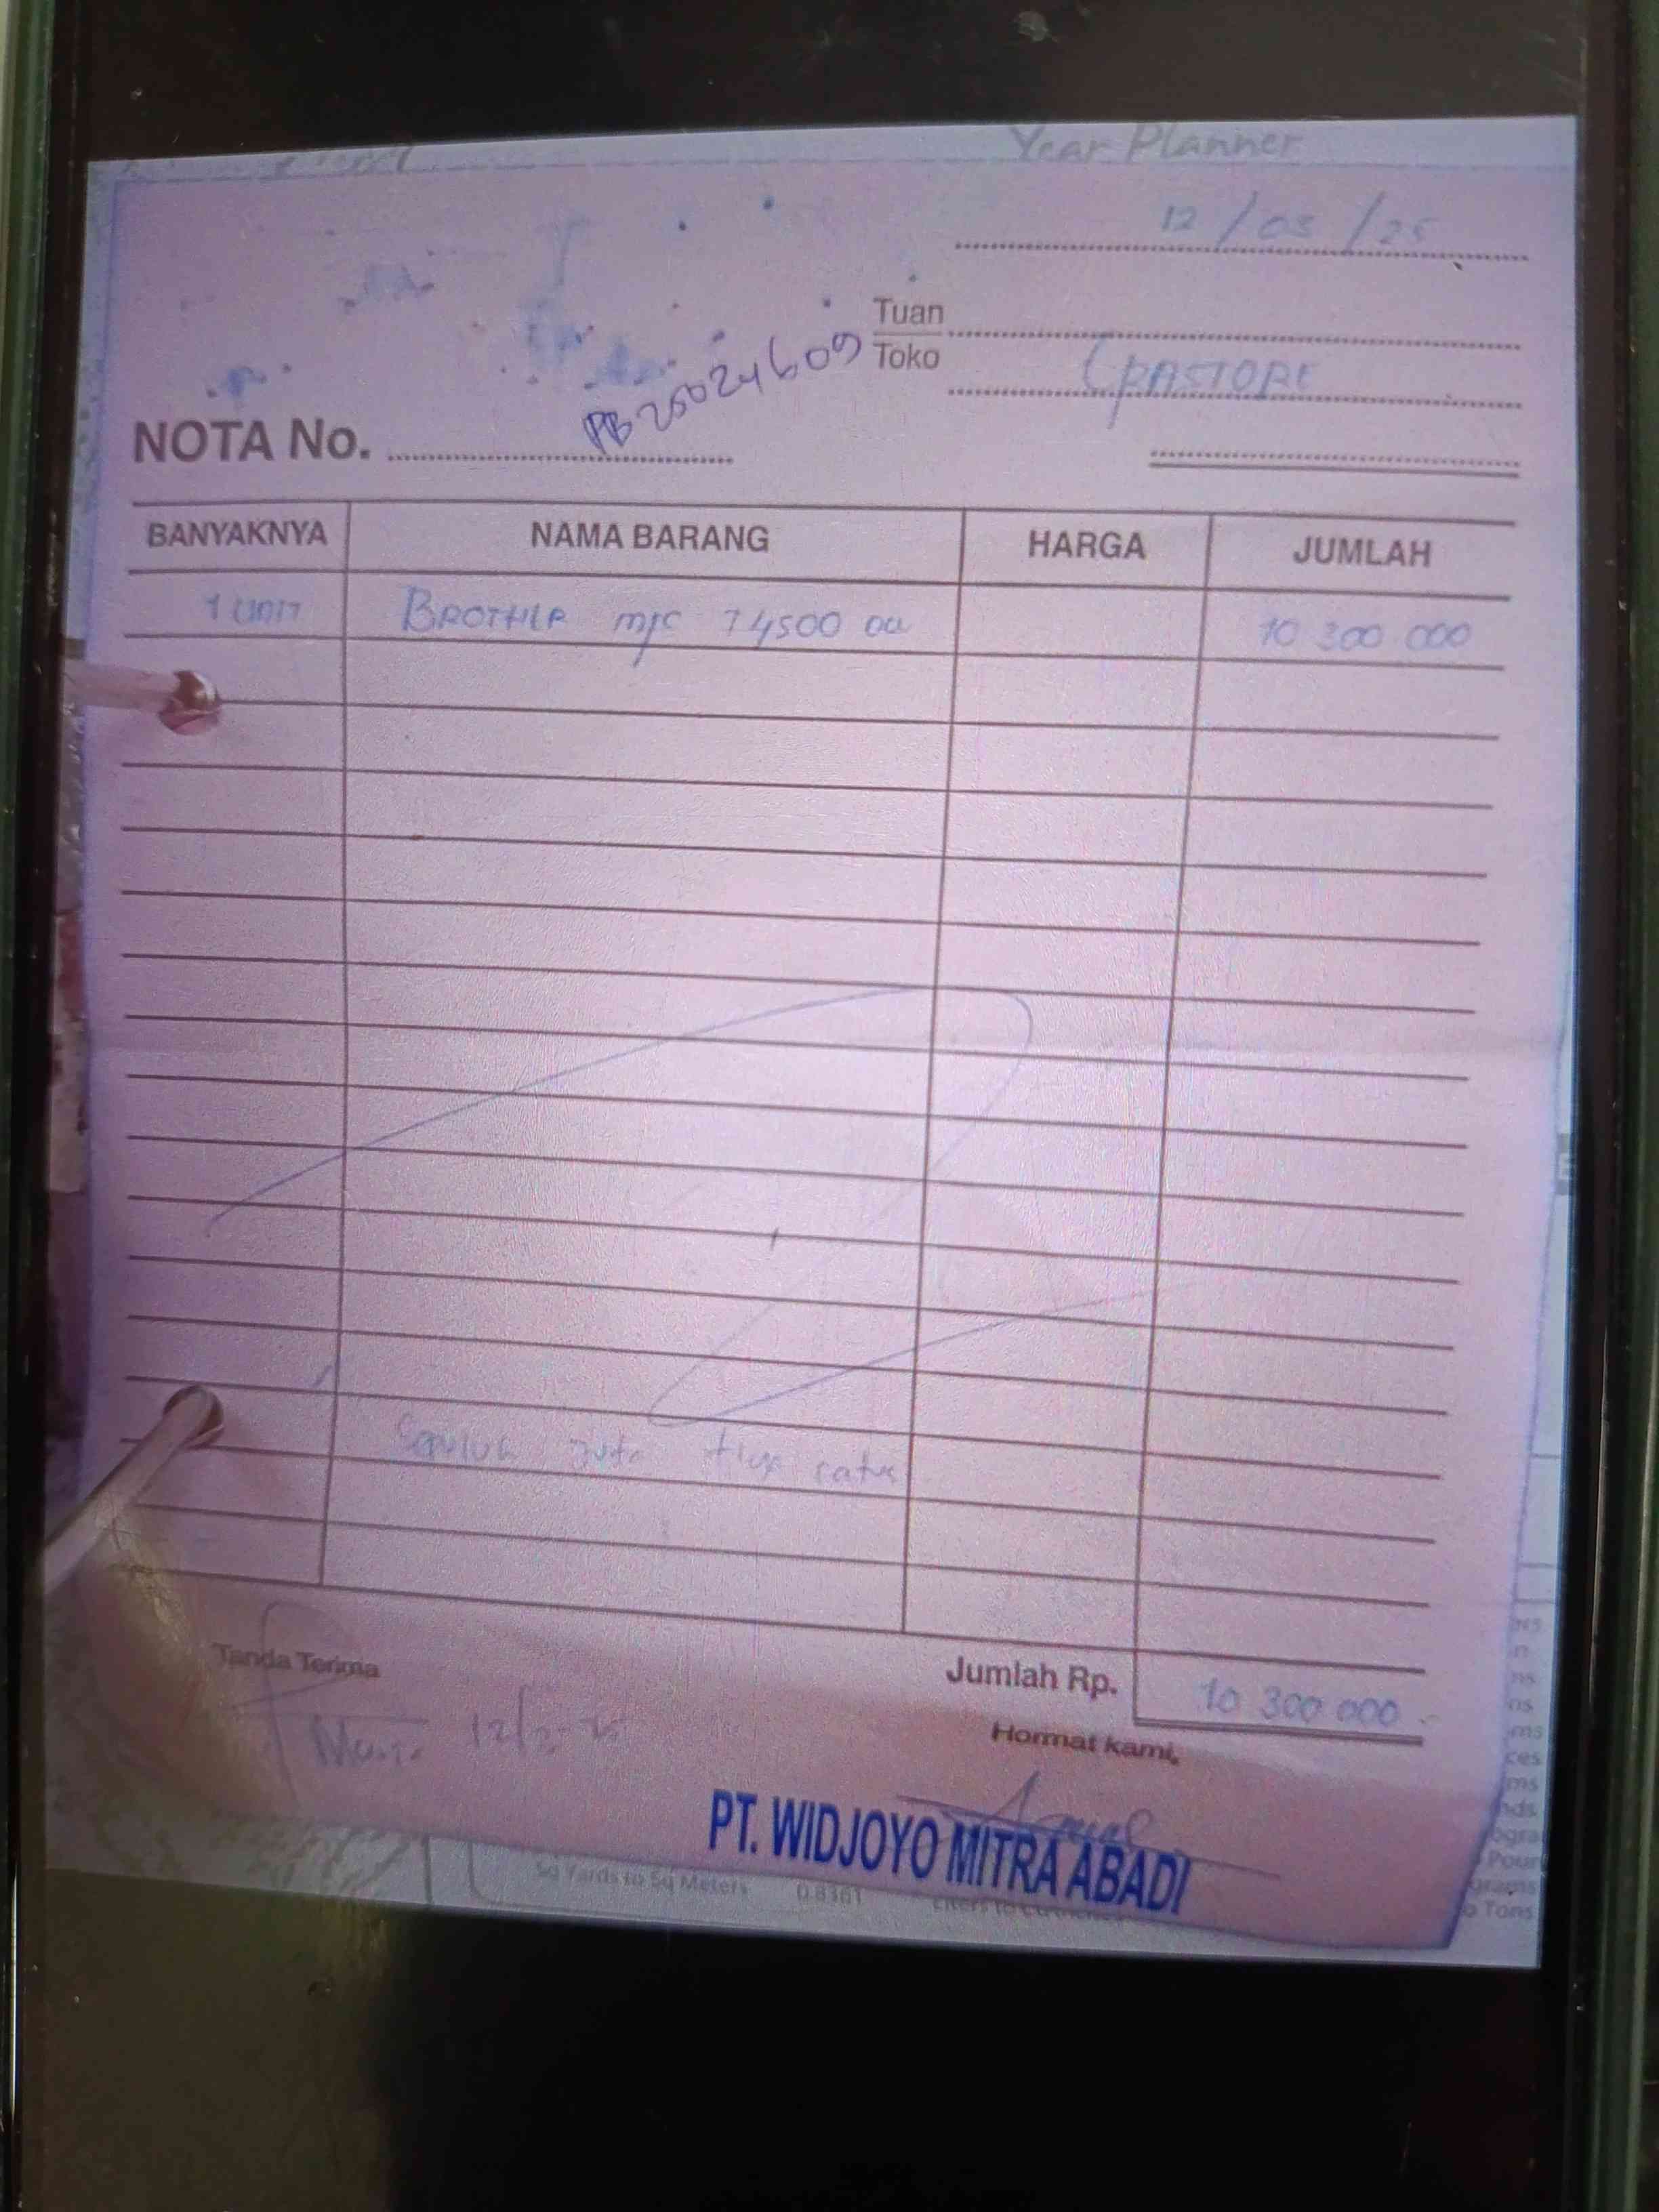 Year Planner
12/03/25
Tuan
Toko
PB25024609
NOTA No.
BANYAKNYA NAMA BARANG HARGA JUMLAH
1 UNIT BROTHER mfc T4500 DW 10 300 000
sepuluh juta tiga ratus
Tanda Terima
Jumlah Rp. 10 300 000
12/3-25
Hormat kami,
PT. WIDJOYO MITRA ABADI
Sq Yards to Sq Meters 0.8361
Tons